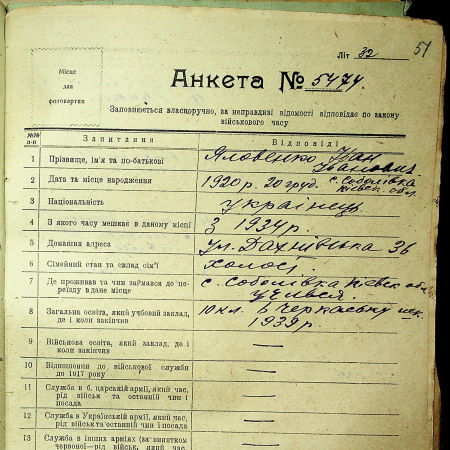 51
Літ 32
Місце
для
фотокартки
Анкета № 5474.
Заповнюється власноручно, за неправдиві відомості відповідає по закону
військового часу
№№ п-п
Запитання
Відповіді
1 Прізвище, ім'я та по-батькові
Яловенко, Іван
Іванович
2 Дата та місце народження
1920 р. 20 груд. с. Соболівка
Київск. обл.
3 Національність
українец
4 З якого часу мешкає в даному місці
З 1934 р.
5 Домашня адреса
Ул. Дахнівська 36
6 Сімейний стан та склад сім'ї
Холост
7 Де проживав та чим займався до пе-
реїзду в дане місце
с. Соболівка Київск. обл.
учився.
8 Загальна освіта, який учбовий заклад,
де і коли закінчив
10 кл. в Черкаську шк.
1939 р.
9 Військова освіта, який заклад, де і
коли закінчив
—
10 Відношення до військової служби
до 1917 року
—
11 Служба в б. царській армії, який час,
рід військ та останній чин і
посада
—
12 Служба в Українській армії, який час,
рід військ та останній чин і посада
—
13 Служба в інших арміях (за винятком
червоної—рід військ, який час,